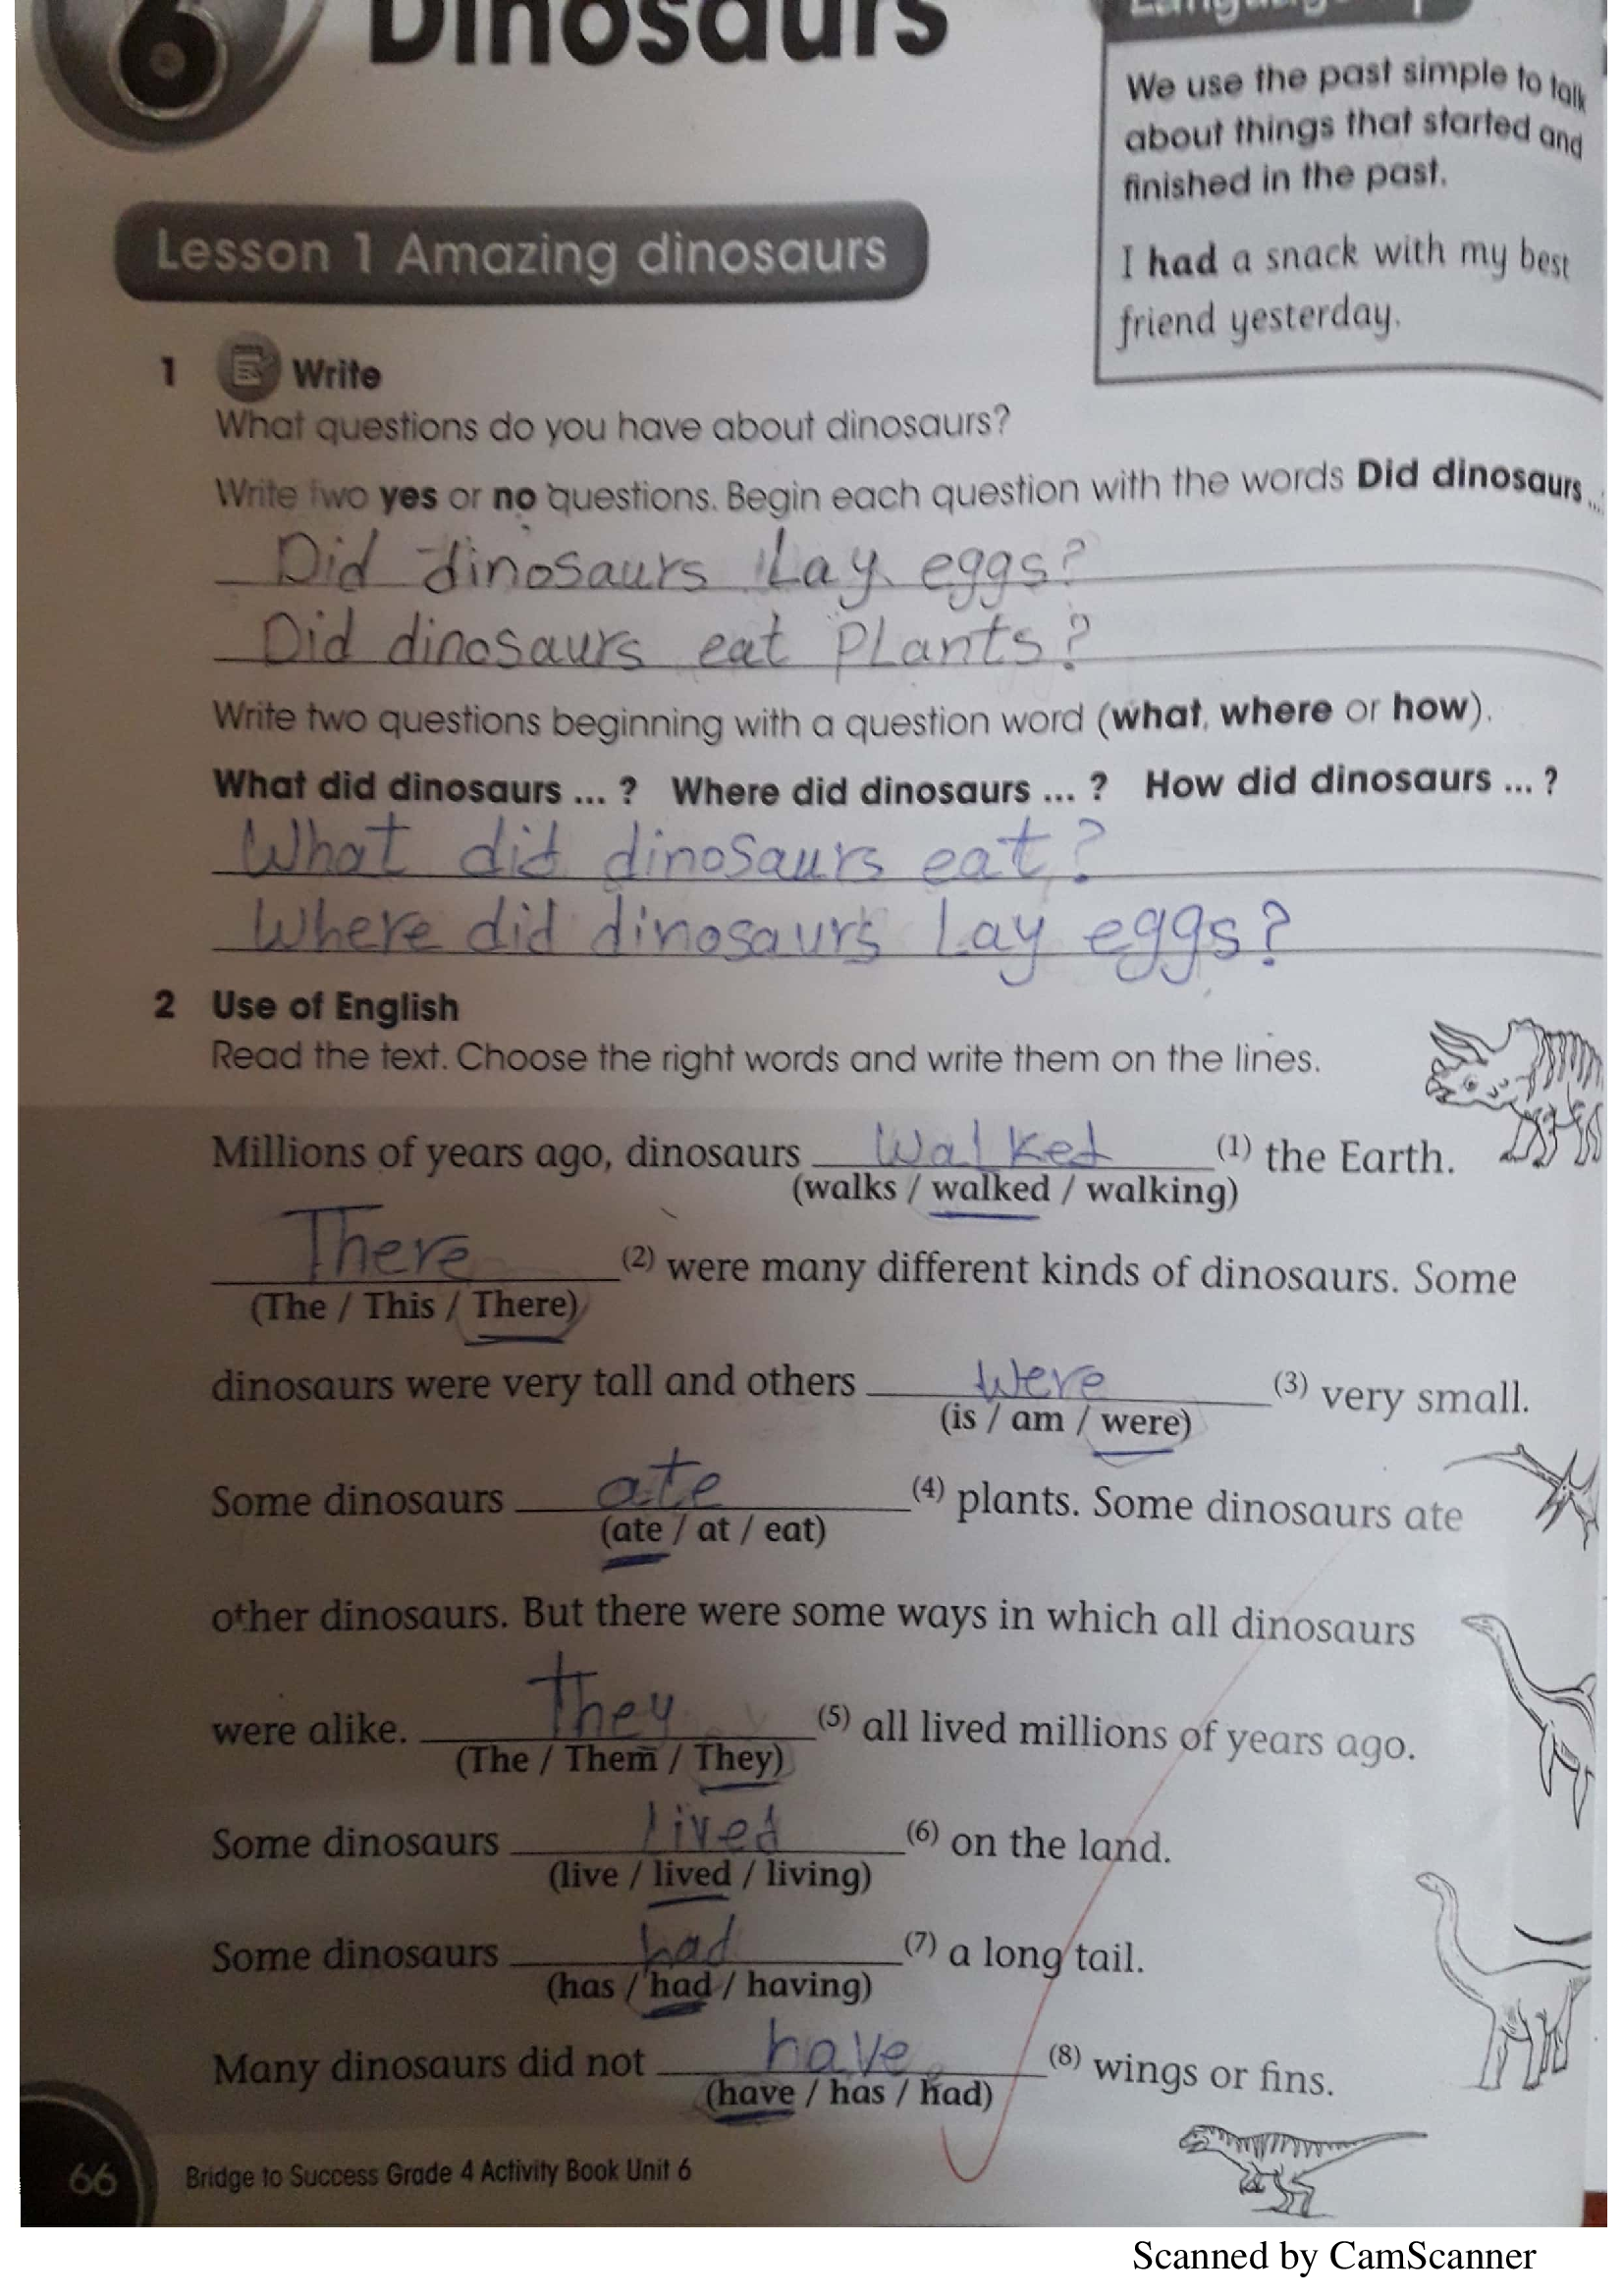 6 Dinosaurs
We use the past simple to talk
about things that started and
finished in the past.
I had a snack with my best
friend yesterday.
Lesson 1 Amazing dinosaurs
1 Write
What questions do you have about dinosaurs?
Write two yes or no questions. Begin each question with the words Did dinosaurs ...
Did dinosaurs Lay eggs?
Did dinosaurs eat PLants?
Write two questions beginning with a question word (what, where or how).
What did dinosaurs ... ? Where did dinosaurs ... ? How did dinosaurs ... ?
What did dinosaurs eat?
Where did dinosaurs Lay eggs?
2 Use of English
Read the text. Choose the right words and write them on the lines.
Millions of years ago, dinosaurs walked (1) the Earth.
(walks / walked / walking)
There (2) were many different kinds of dinosaurs. Some
(The / This / There)
dinosaurs were very tall and others were (3) very small.
(is / am / were)
Some dinosaurs ate (4) plants. Some dinosaurs ate
(ate / at / eat)
other dinosaurs. But there were some ways in which all dinosaurs
were alike. They (5) all lived millions of years ago.
(The / Them / They)
Some dinosaurs lived (6) on the land.
(live / lived / living)
Some dinosaurs had (7) a long tail.
(has / had / having)
Many dinosaurs did not have (8) wings or fins.
(have / has / had)
66 Bridge to Success Grade 4 Activity Book Unit 6
Scanned by CamScanner